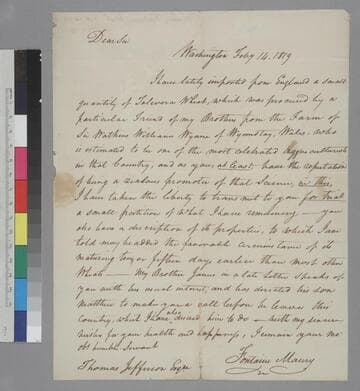 Dear Sir
Washington Feby 14. 1819
I have lately imported from England a small
quantity of Talevera Wheat, which was procured by a
particular friend of my Brother from the Farm of
Sir Watkins Williams Wynne of Wynnstay, Wales, who
is estimated to be one of the most celebrated Agriculturists
in that Country, and as you, at least have the reputation
of being a zealous promoter of that Science, in this,
I have taken the liberty to transmit to you for trial
a small portion of what I have remaining — you
also have a description of its properties, to which I am
told may be added the favorable circumstance of its
maturing ten or fifteen days earlier than most other
Wheats — My Brother James in a late letter speaks of
you with his usual interest, and has directed his son
Matthew to make you a call before he leaves this
country, which I have also advised him to do — with my sincere
wishes for your health and happiness, I remain your mo
obt humble Servant
Fontaine Maury
Thomas Jefferson Esqre